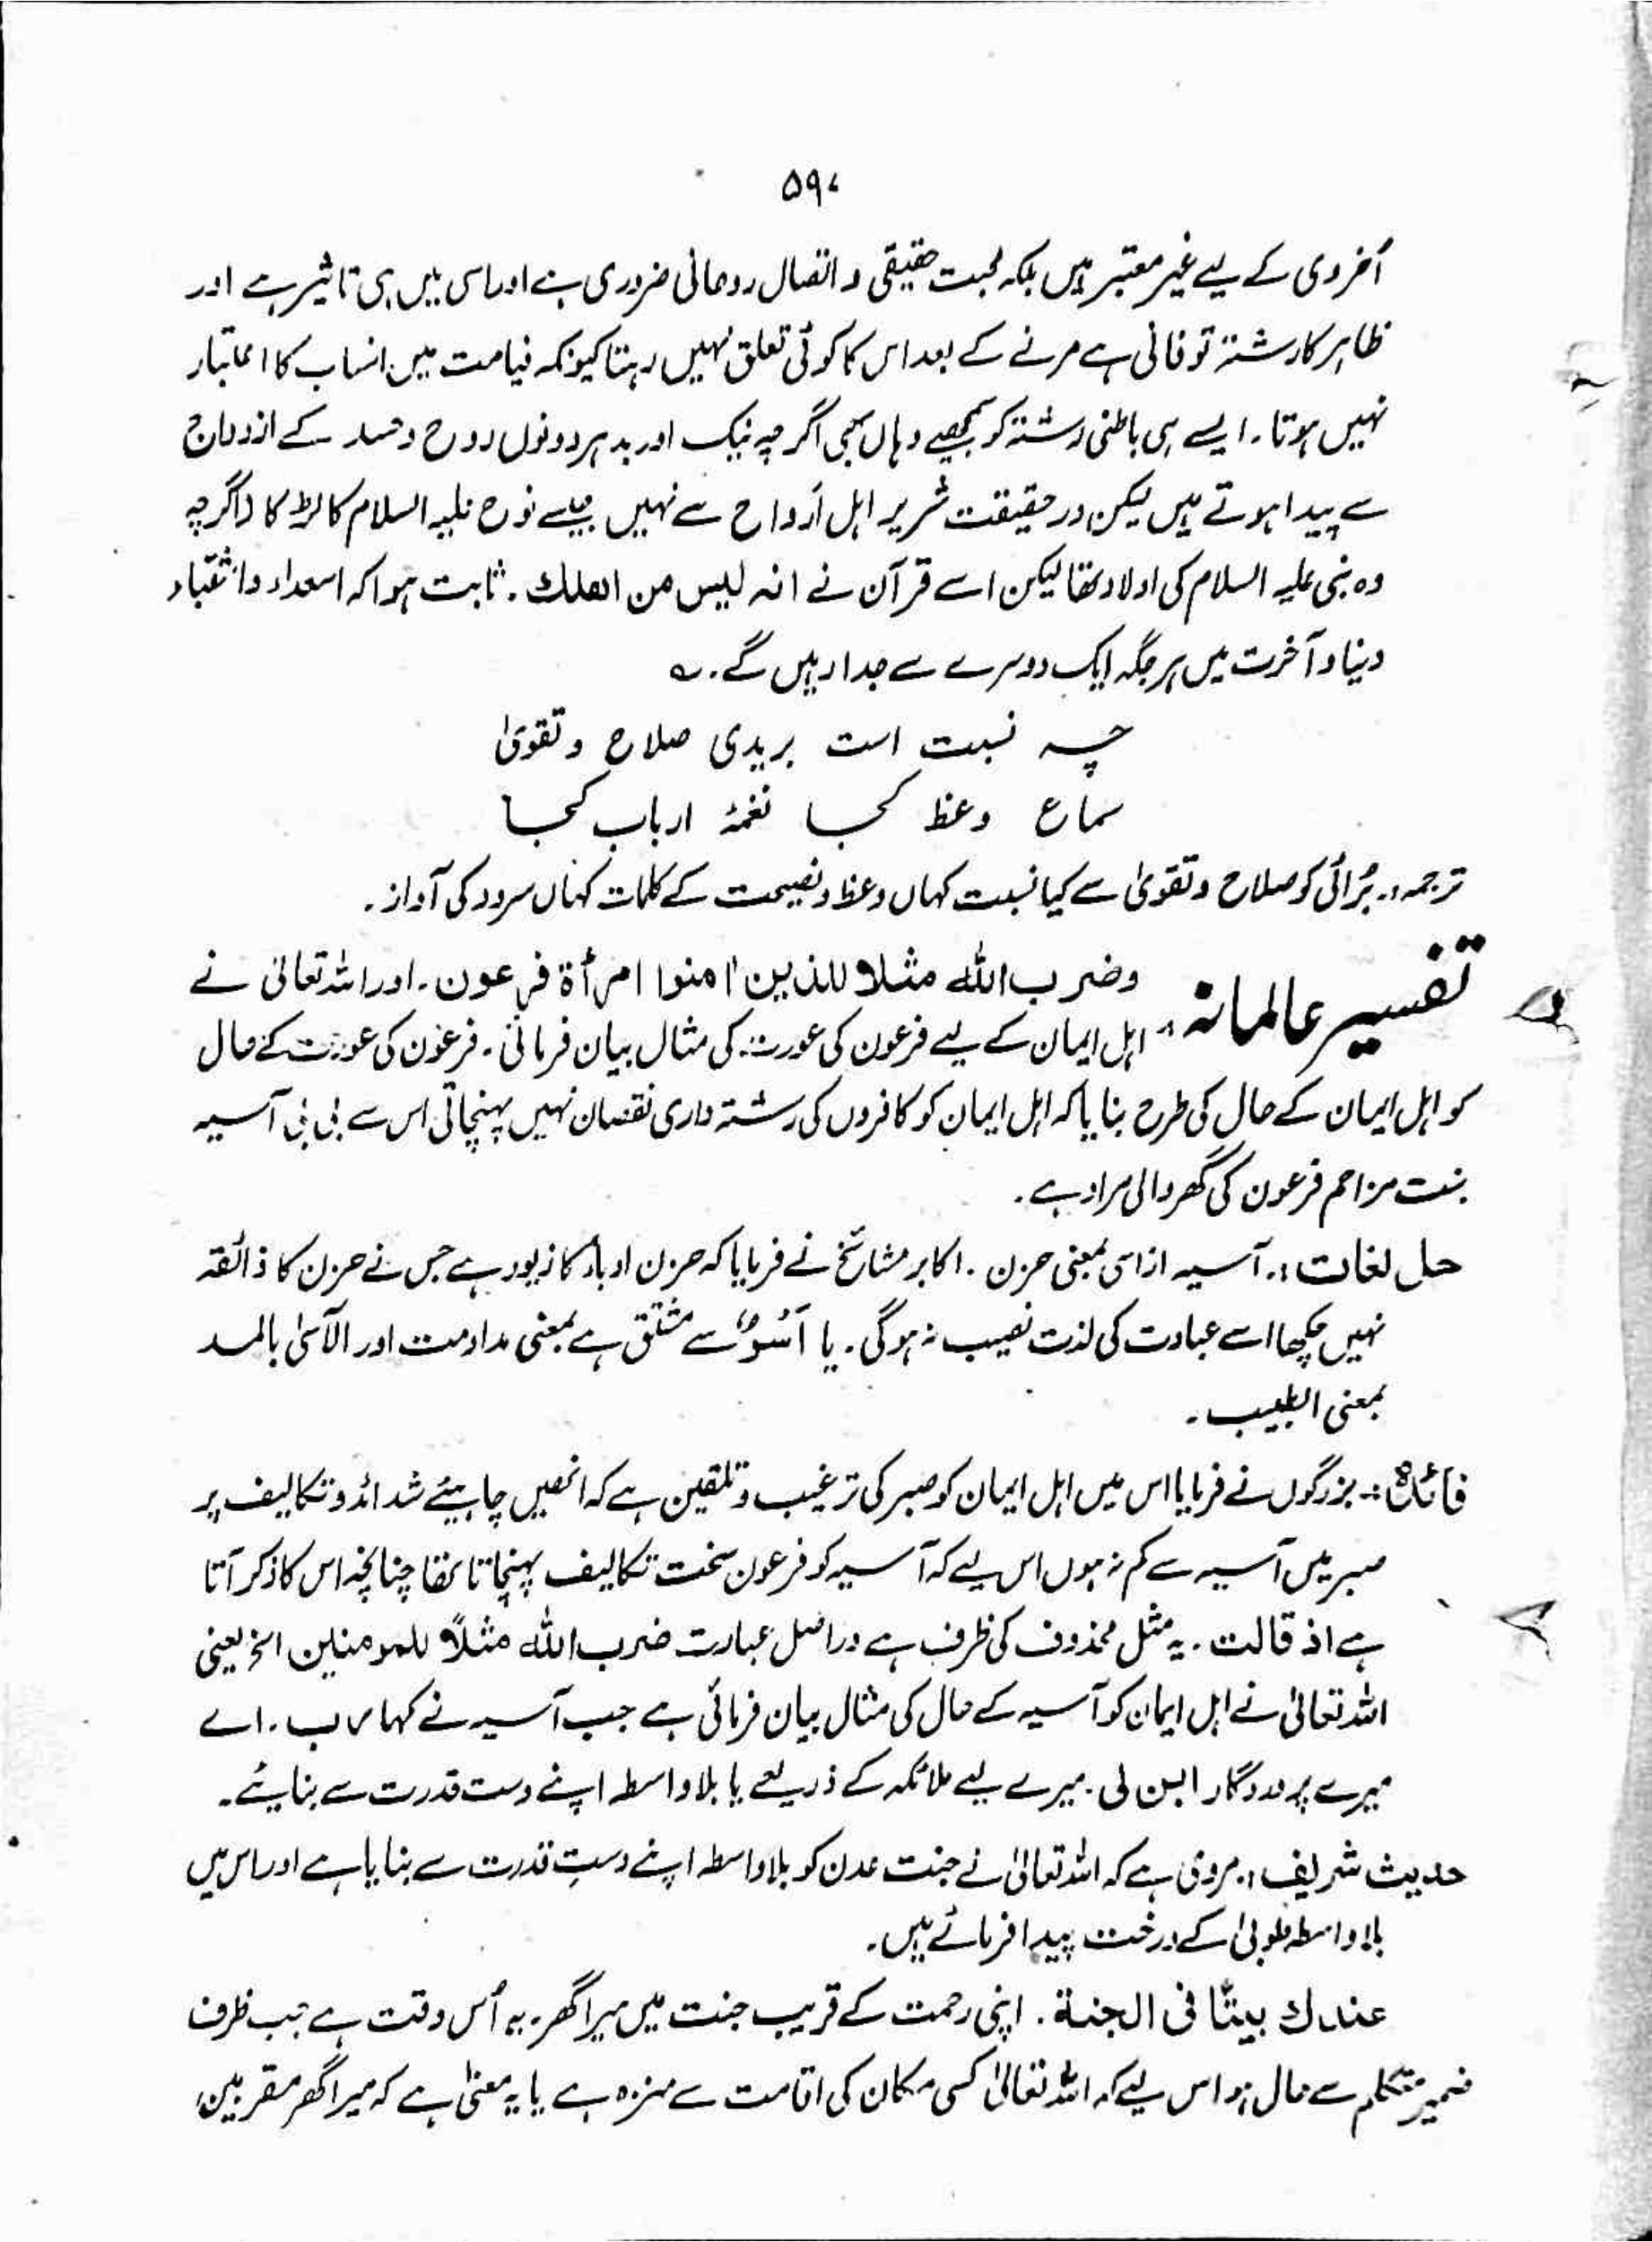 ۵۹۷
اُخروی کے لیے غیر معتبر ہیں بلکہ محبت حقیقی و اتصال روحانی ضروری ہے اور اسی میں ہی تاثیر ہے اور
ظاہر کا رشتہ تو فانی ہے مرنے کے بعد اس کا کوئی تعلق نہیں رہتا کیونکہ قیامت میں انساب کا اعتبار
نہیں ہوتا۔ ایسے ہی باطنی رشتہ کو سمجھیے وہاں بھی اگرچہ نیک اور بد ہر دونوں روح و جسد کے ازدواج
سے پیدا ہوتے ہیں لیکن درحقیقت شریر اہل اَرواح سے نہیں جیسے نوح علیہ السلام کا لڑکا (اگرچہ
وہ نبی علیہ السلام کی اولاد تھا لیکن اسے قرآن نے انہ لیس من اھلک۔ ثابت ہوا کہ اسعداء و اشقیاء
دنیا و آخرت میں ہر جگہ ایک دوسرے سے جدا رہیں گے۔ ؎
چہ نسبت است بریدی صلاح و تقویٰ
سماع وعظ کجا نغمۂ ارباب کجا
ترجمہ:۔ بُرائی کو صلاح و تقویٰ سے کیا نسبت کہاں وعظ و نصیحت کے کلمات کہاں سرود کی آواز۔
تفسیر عالمانہ: وضرب اللہ مثلا للذین اٰمنوا امرأۃ فرعون۔ اور اللہ تعالیٰ نے
اہل ایمان کے لیے فرعون کی عورت کی مثال بیان فرمائی۔ فرعون کی عورت کے حال
کو اہل ایمان کے حال کی طرح بنایا کہ اہل ایمان کو کافروں کی رشتہ داری نقصان نہیں پہنچاتی اس سے بی بی آسیہ
بنت مزاحم فرعون کی گھر والی مراد ہے۔
حل لغات:۔ آسیہ از اسی بمعنی حزن۔ اکابر مشائخ نے فرمایا کہ حزن ادباء کا زیور ہے جس نے حزن کا ذائقہ
نہیں چکھا اسے عبادت کی لذت نصیب نہ ہوگی۔ یا اَسْوٌ سے مشتق ہے بمعنی مداومت اور الآسیٰ بالمد
بمعنی الطبیب۔
فائدہ:۔ بزرگوں نے فرمایا اس میں اہل ایمان کو صبر کی ترغیب و تلقین ہے کہ انھیں چاہیئے شدائد و تکالیف پر
صبر میں آسیہ سے کم نہ ہوں اس لیے کہ آسیہ کو فرعون سخت تکالیف پہنچاتا تھا چنانچہ اس کا ذکر آتا
ہے اذ قالت۔ یہ مثل محذوف کی ظرف ہے دراصل عبارت ضرب اللہ مثلاً للمومنین الخ یعنی
اللہ تعالیٰ نے اہل ایمان کو آسیہ کے حال کی مثال بیان فرمائی ہے جب آسیہ نے کہا رب۔ اے
میرے پروردگار ابن لی۔ میرے لیے ملائکہ کے ذریعے یا بلا واسطہ اپنے دست قدرت سے بنایئے۔
حدیث شریف:۔ مروی ہے کہ اللہ تعالیٰ نے جنت عدن کو بلا واسطہ اپنے دستِ قدرت سے بنایا ہے اور اس میں
بلا واسطہ طوبیٰ کے درخت پیدا فرمائے ہیں۔
عندک بیتًا فی الجنۃ۔ اپنی رحمت کے قریب جنت میں میرا گھر۔ یہ اُس وقت ہے جب ظرف
ضمیر متکلم سے حال ہو اس لیے کہ اللہ تعالیٰ کسی مکان کی اقامت سے منزہ ہے یا یہ معنیٰ ہے کہ میرا گھر مقربین